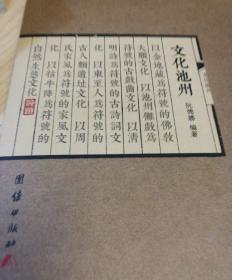 文化池州
阮德勝 編著
以金地藏爲符號的佛教
大願文化 以池州儺戲爲
符號的古戲曲文化 以清
明詩爲符號的古詩詞文
化 以東至人爲符號的
古人類遺址文化 以周
氏家風爲符號的家風文
化 以牯牛降爲符號的
自然生態文化
团结出版社